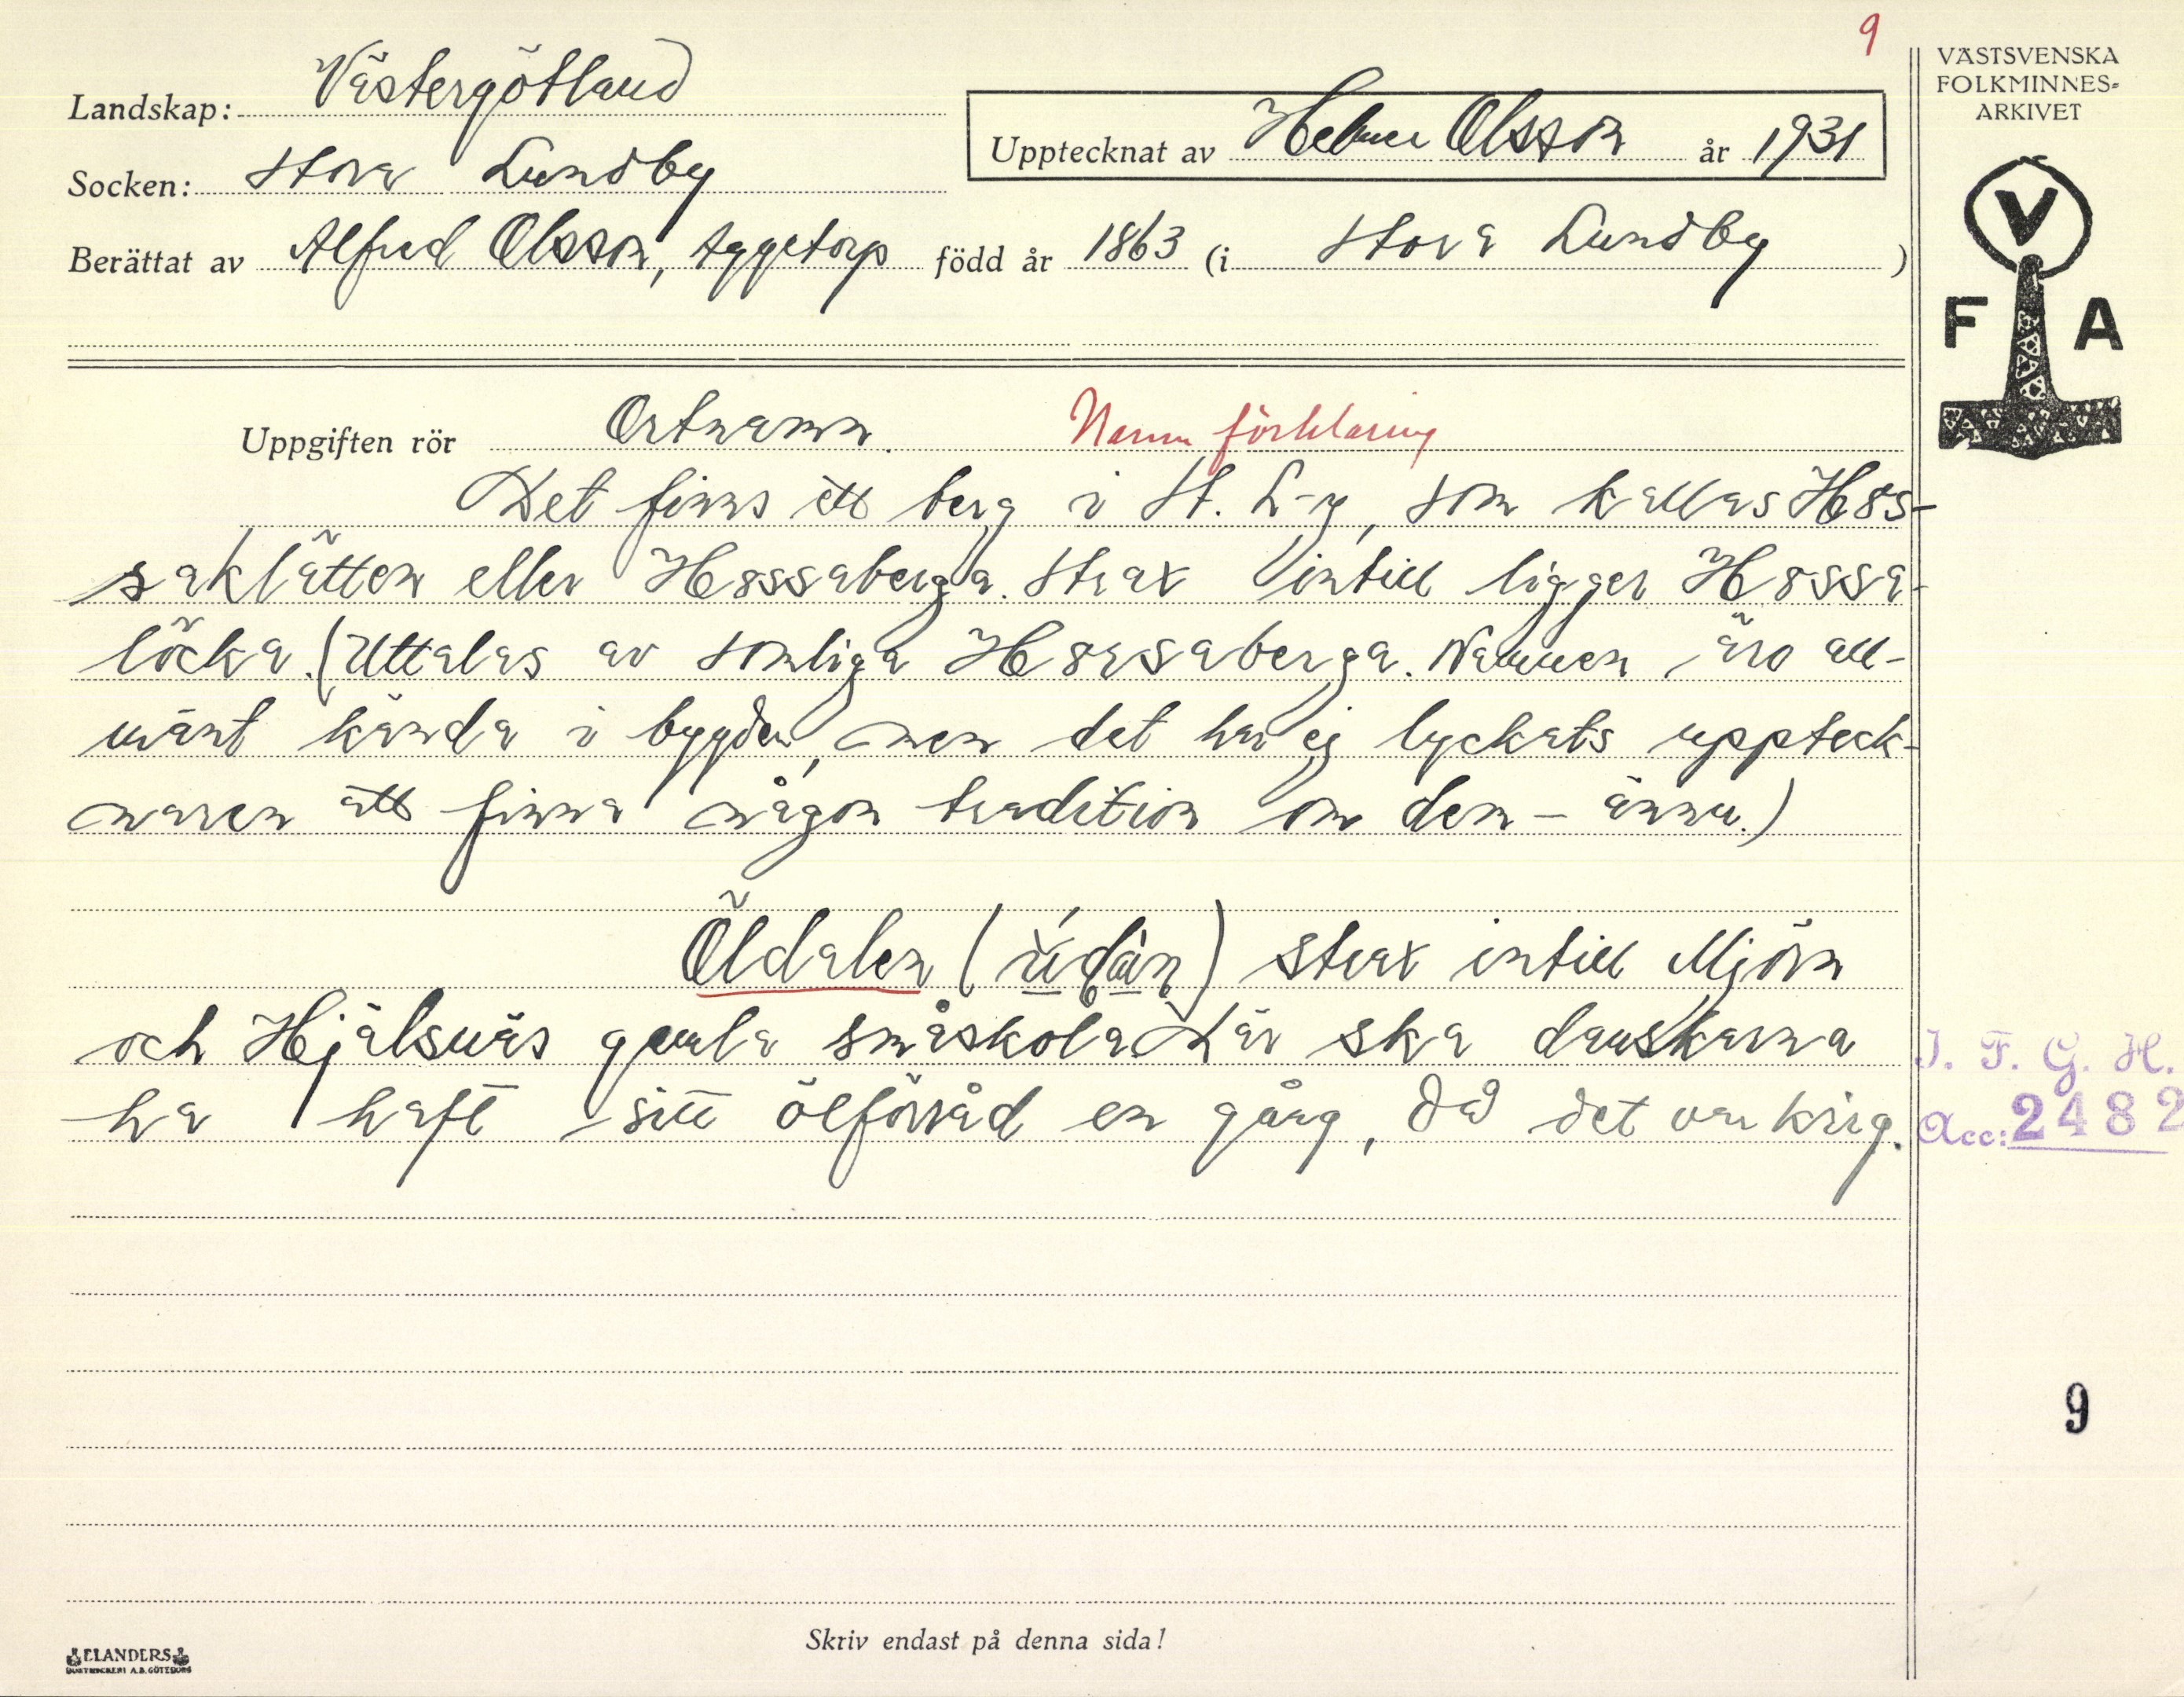 9
VÄSTSVENSKA
FOLKMINNES-
ARKIVET
Landskap: Västergötland
Upptecknat av Helmer Olsson år 1931
Socken: Stora Lundby
Berättat av Alfred Olsson, Äggetorp född år 1863 (i Stora Lundby)
V
F A
Uppgiften rör Ortnamn. Namnförklaring
Det finns ett berg i St. L-y, som kallas Hös-
saklätten eller Hössaberga. Strax intill ligger Hössa-
löcka. (Uttalas av somliga Hörsaberga. Namnen äro all-
mänt kända i bygden, men det har ej lyckats uppteck-
naren att finna någon tradition om dem - ännu.)
Öldalen ( ) strax intill Mjörn
och Hjälsnäs gamla småskola. Där ska danskarna
ha haft sitt ölförråd en gång, då det var krig.
I. F. G. H.
Acc: 2482
9
Skriv endast på denna sida!
ELANDERS
BOKTRYCKERI A.B. GÖTEBORG